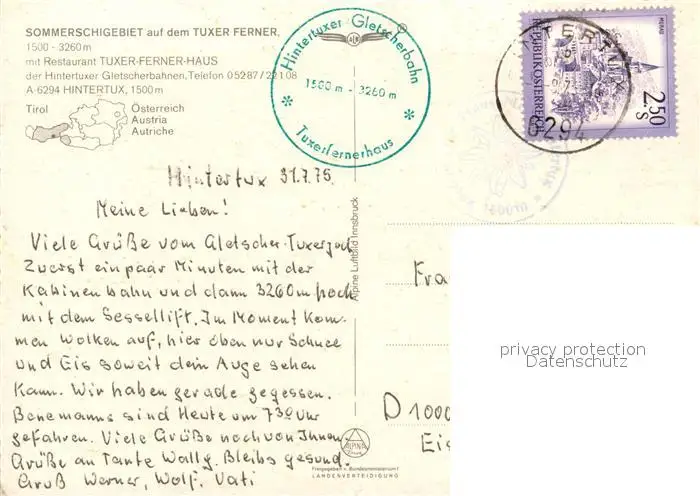 SOMMERSCHIGEBIET auf dem TUXER FERNER,
1500 - 3260 m
mit Restaurant TUXER-FERNER-HAUS
der Hintertuxer Gletscherbahnen, Telefon 0 52 87 / 22 1 08
A-6294 HINTERTUX, 1500 m
Tirol
Österreich
Austria
Autriche
Hintertuxer Gletscherbahn
1500 m - 3260 m
Tuxerfernerhaus
REPUBLIK ÖSTERREICH
MURAU
2.50
S
6294
Hintertux 31.7.75
Meine Lieben!
Viele Grüße vom Gletscher-Tuxerjoch
Zuerst ein paar Minuten mit der
Kabinenbahn und dann 3260m hoch
mit dem Sessellift. Im Moment kom-
men Wolken auf, hier oben nur Schnee
und Eis soweit dein Auge sehen
kann. Wir haben gerade gegessen.
Benemanns sind Heute um 7³⁰ Uhr
gefahren. Viele Grüße noch von Ihnen.
Grüße an Tante Wally. Bleibs gesund.
Gruß Werner, Wolf, Vati
Alpine Luftbild Innsbruck
Fra
D 1000
Eis
ALPINE
Freigegeben v. Bundesministerium f.
LANDESVERTEIDIGUNG
privacy protection
Datenschutz